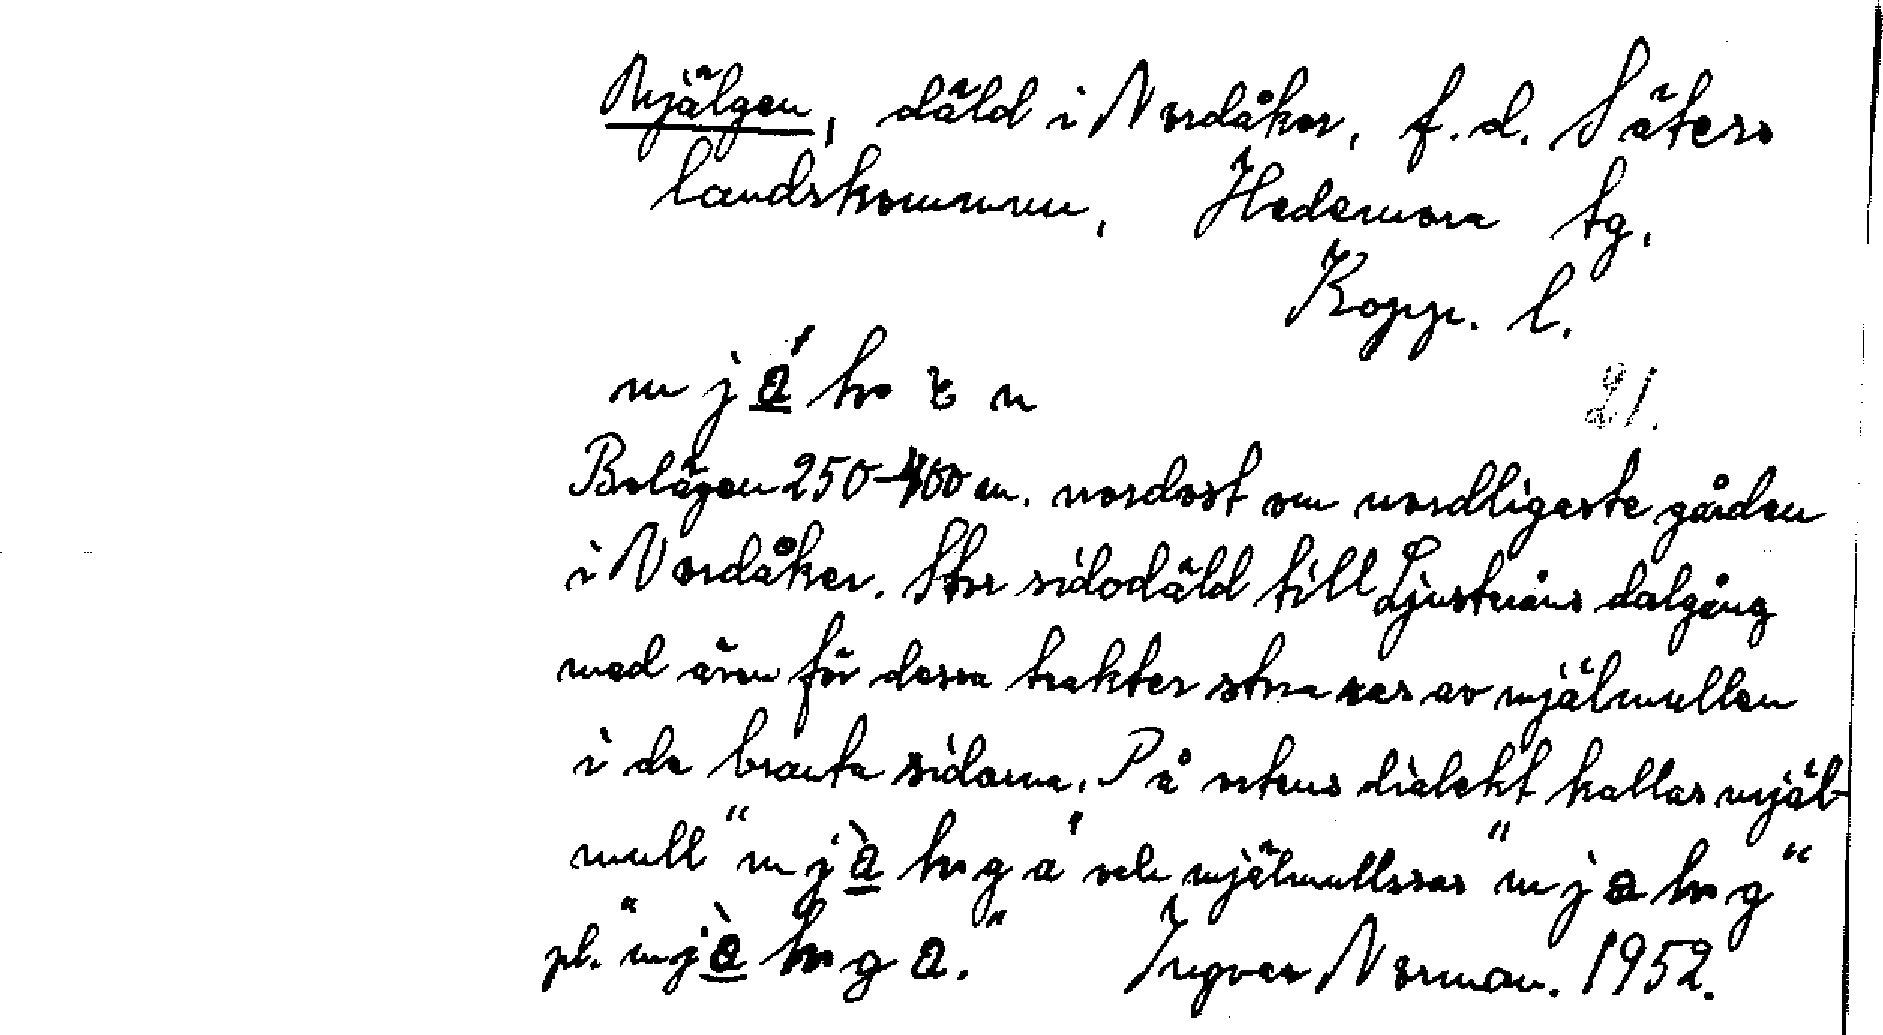 Mjälgen, däld i Nordåker, f.d. Säters
landskommun, Hedemora tg.
Kopp. l.
21.
Belägen 250-400 m. nordost om nordligaste gården
i Nordåker. Stor sidodäld till Ljusteråns dalgång
med även för dessa trakter stora ras av mjälmullen
i de branta sidorna. På ortens dialekt kallas mjäl-
mull och mjälmullsras
pl. Ingvar Norman. 1952.